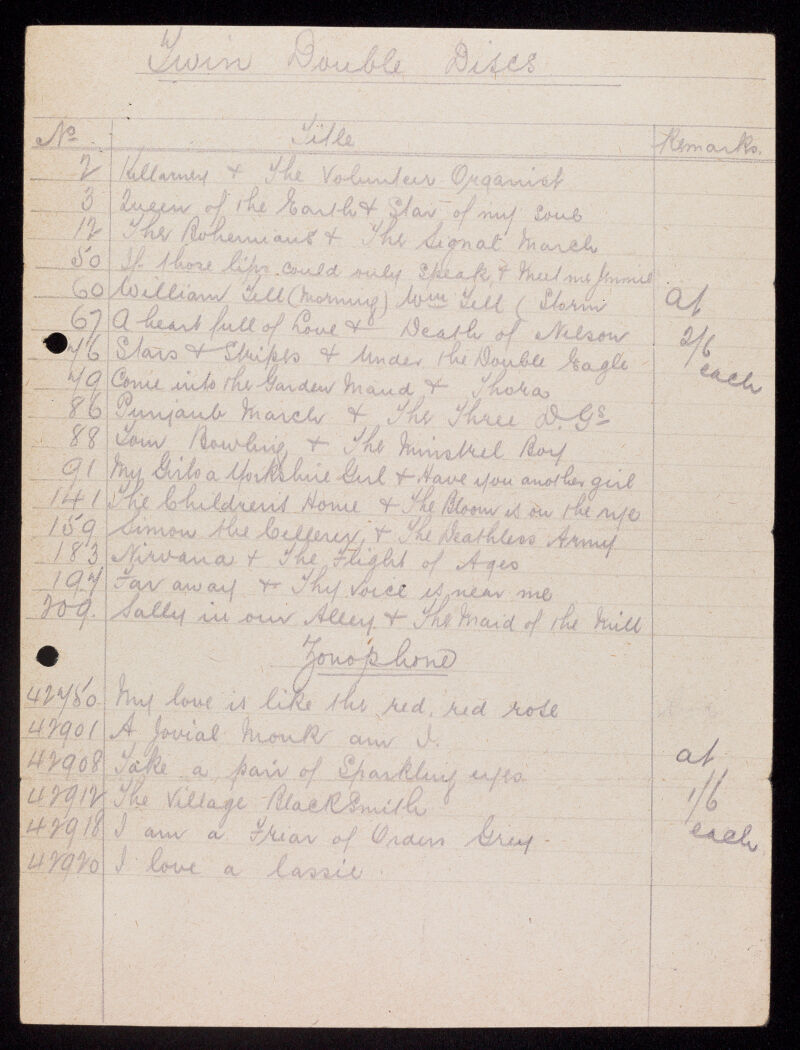 Twin Double Discs
No. Title Remarks.
2 Killarney & The Volunteer Organist
3 Queen of the Earth & Star of my soul
12 The Bohemians & The Signal March
50 If those lips could only speak & Meet me Jennie
60 William Tell (Morning) Wm Tell (Storm
67 A heart full of Love & Death of Nelson
76 Stars & Stripes & Under the Double Eagle
79 Come into the Garden Maud & Thora
86 Punjaub March & The Three D.Gs
88 Tom Bowling & The Minstrel Boy
91 My Girls a Yorkshire Girl & Have you another girl
141 The Children's Home & The Bloom is on the rye
159 Simon the Cellerer, & The Deathless Army
183 Nirvana & The Flight of Ages
197 Far away & Thy voice is near me
209. Sally in our Alley & The Maid of the Mill
at
2/6
each
Zonophone
42750. My love is like the red, red rose
42901 A Jovial Monk am I.
42908 Take a pair of Sparkling eyes
42912 The Village BlackSmith
42918 I am a Friar of Orders Grey.
42920 I love a lassie.
at
1/6
each